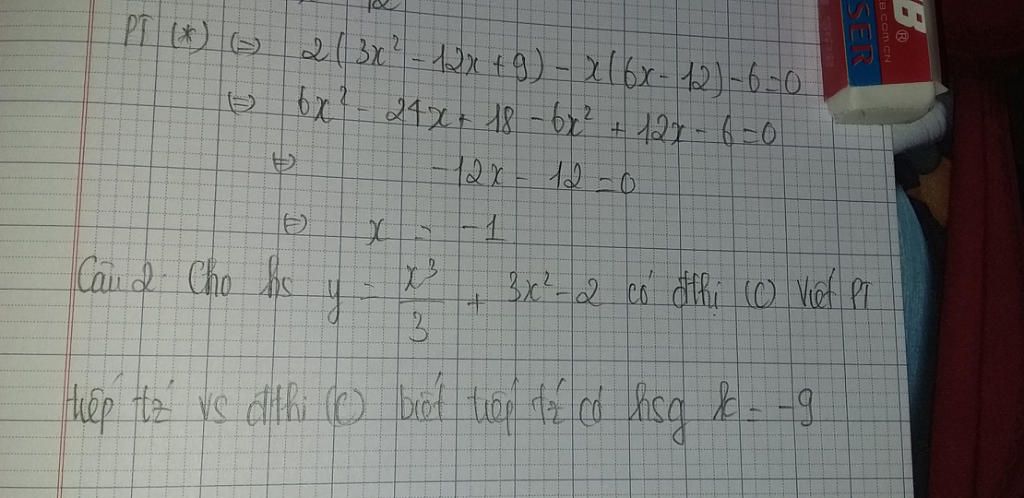 PT (*) ⇔ 2(3x² - 12x + 9) - x(6x - 12) - 6 = 0
⇔ 6x² - 24x + 18 - 6x² + 12x - 6 = 0
⇔ -12x - 12 = 0
⇔ x = -1
Câu 2 Cho hs y = x³/3 + 3x² - 2 có đthị (C) Viết PT
tiếp tź vs đthi (C) biết tiếp tź có hsg k = -9
B®
B.COM.CN
SER